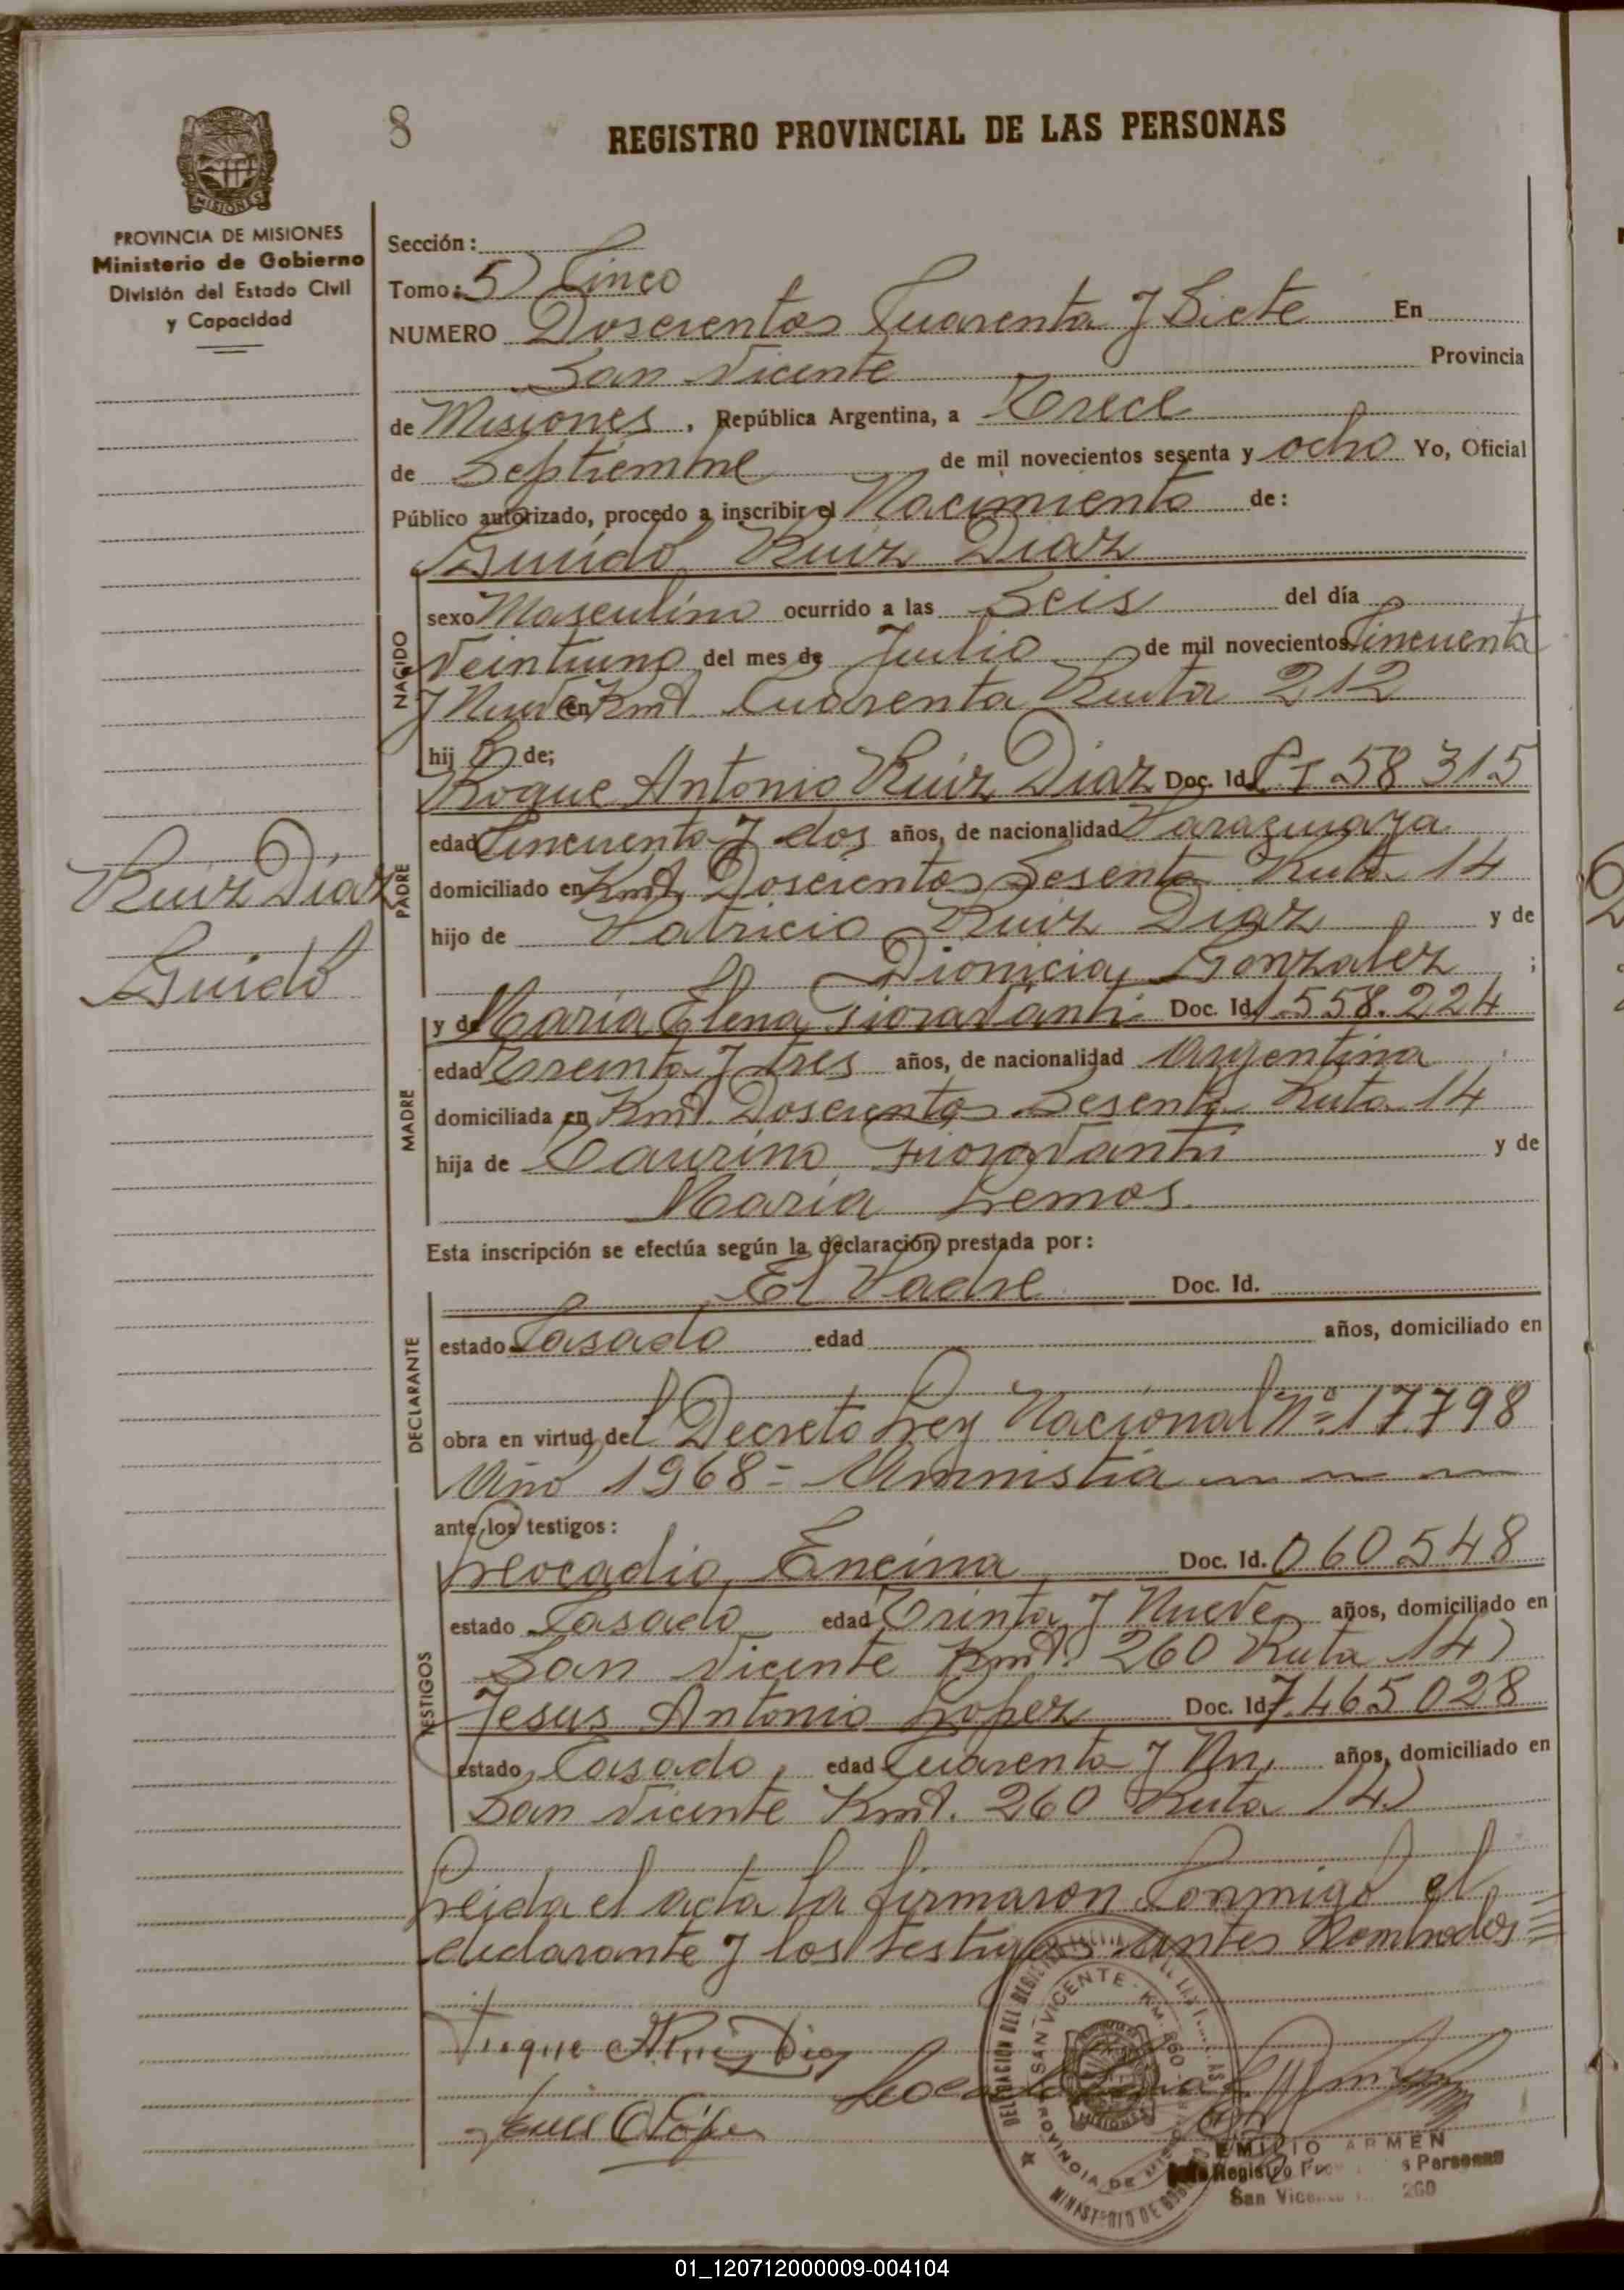 8
REGISTRO PROVINCIAL DE LAS PERSONAS
MISIONES
PROVINCIA DE MISIONES
Ministerio de Gobierno
División del Estado Civil
y Capacidad
Sección:
Tomo: 5) Cinco
NUMERO Doscientos Cuarenta y Siete En
San Vicente Provincia
de Misiones, República Argentina, a Trece
de Septiembre de mil novecientos sesenta y ocho Yo, Oficial
Público autorizado, procedo a inscribir el Nacimiento de:
Guido Ruiz Diaz
NACIDO
sexo Masculino ocurrido a las Seis del día
Veintiuno del mes de Julio de mil novecientos Cincuenta
y Nueve en Kmt. Cuarenta Ruta 212
hijo de;
PADRE
Roque Antonio Ruiz Diaz Doc. Id. C I 58 315
edad Cincuenta y dos años, de nacionalidad Paraguaya
domiciliado en Kmt. Doscientos Sesenta Ruta 14
hijo de Patricio Ruiz Diaz y de
Dionicia Gonzalez ;
Ruiz Diaz
Guido
MADRE
y de Maria Elena Fioravanti Doc. Id. 1.558.224
edad Treinta y tres años, de nacionalidad Argentina
domiciliada en Kmt. Doscientos Sesenta Ruta 14
hija de Taurino Fioravanti y de
Maria Lemos.
Esta inscripción se efectúa según la declaración prestada por:
DECLARANTE
El Padre Doc. Id.
estado Casado edad años, domiciliado en
obra en virtud del Decreto Ley Nacional Nº 17.798
Año 1968 = Amnistia
ante los testigos:
TESTIGOS
Leocadio Encina Doc. Id. 060548
estado Casado edad Trinta y Nueve años, domiciliado en
San Vicente Kmt. 260 Ruta 14)
Jesus Antonio Lopez Doc. Id. 7.465.028
estado Casado, edad Cuarenta y Un, años, domiciliado en
San Vicente Kmt. 260 Ruta 14)
Leida el acta la firmaron Conmigo el
declarante y los testigos antes Nombrados =
Roque A Ruiz Diaz
SAN VICENTE - KM. 260
PROVINCIA DE MISIONES
MINISTERIO DE GOBIERNO
EMILIO ARMEN
Registro Personas
San Vicente 260
01_120712000009-004104